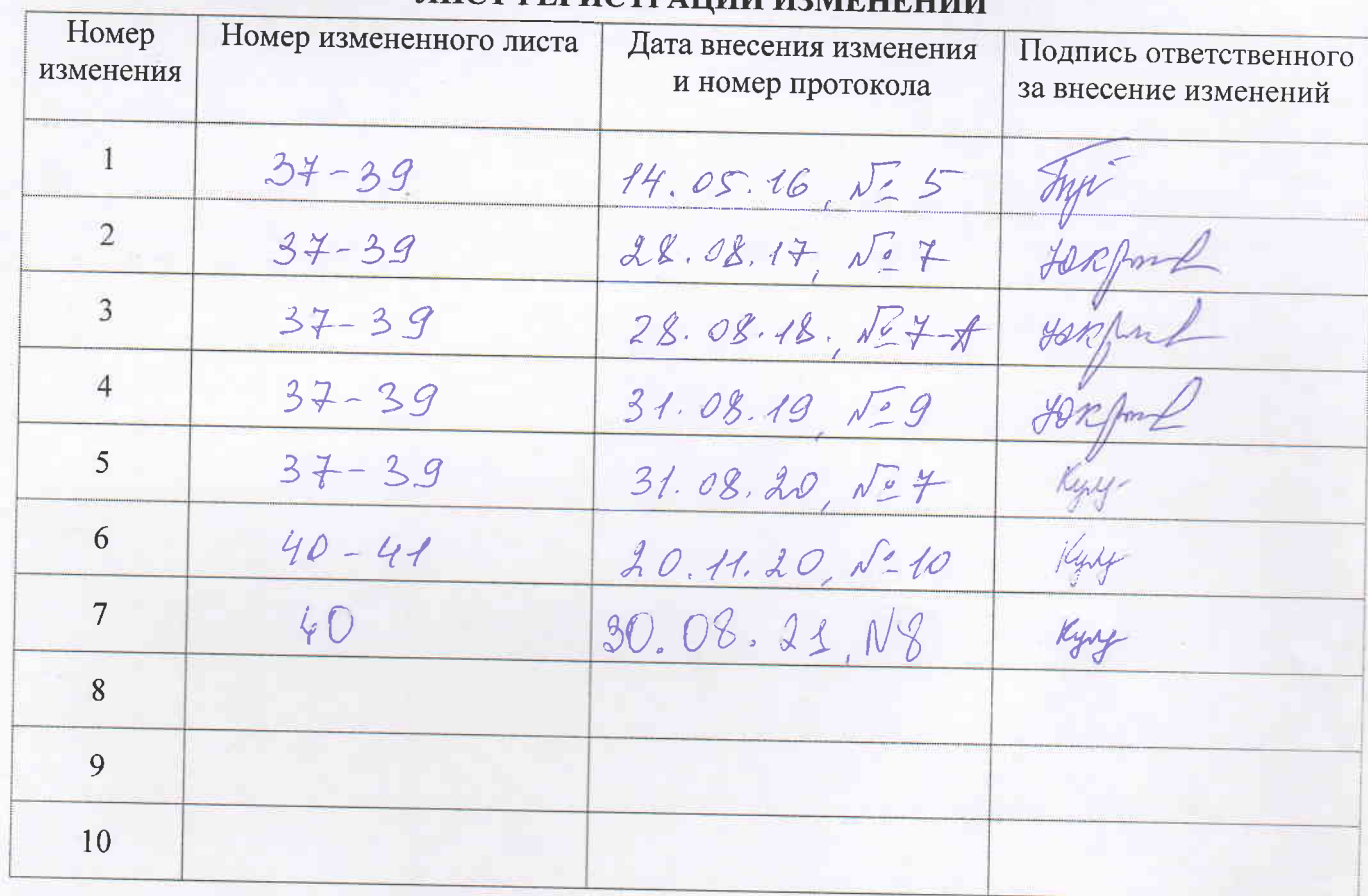 ЛИСТ РЕГИСТРАЦИИ ИЗМЕНЕНИЙ
Номер изменения
Номер измененного листа
Дата внесения изменения и номер протокола
Подпись ответственного за внесение изменений
1 37-39 14.05.16, № 5
2 37-39 28.08.17, № 7
3 37-39 28.08.18., № 7-А
4 37-39 31.08.19, № 9
5 37-39 31.08.20, № 7
6 40-41 20.11.20, № 10
7 40 30.08.21, N8
8
9
10